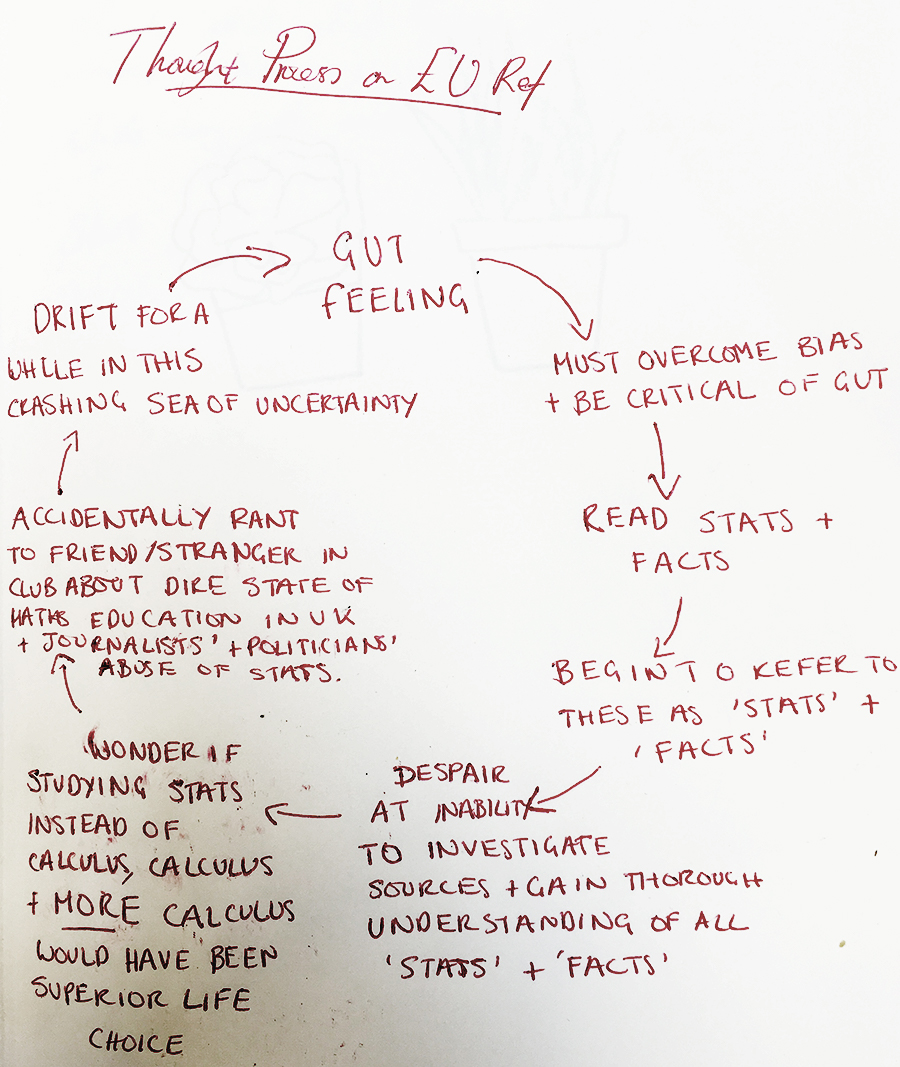 Thought Process on EU Ref
GUT
FEELING
MUST OVERCOME BIAS
+ BE CRITICAL OF GUT
READ STATS +
FACTS
BEGIN TO REFER TO
THESE AS 'STATS' +
'FACTS'
DESPAIR
AT INABILITY
TO INVESTIGATE
SOURCES + GAIN THOROUGH
UNDERSTANDING OF ALL
'STATS' + 'FACTS'
WONDER IF
STUDYING STATS
INSTEAD OF
CALCULUS, CALCULUS
+ MORE CALCULUS
WOULD HAVE BEEN
SUPERIOR LIFE
CHOICE
ACCIDENTALLY RANT
TO FRIEND/STRANGER IN
CLUB ABOUT DIRE STATE OF
MATHS EDUCATION IN UK
+ JOURNALISTS' + POLITICIANS'
ABUSE OF STATS.
DRIFT FOR A
WHILE IN THIS
CRASHING SEA OF UNCERTAINTY